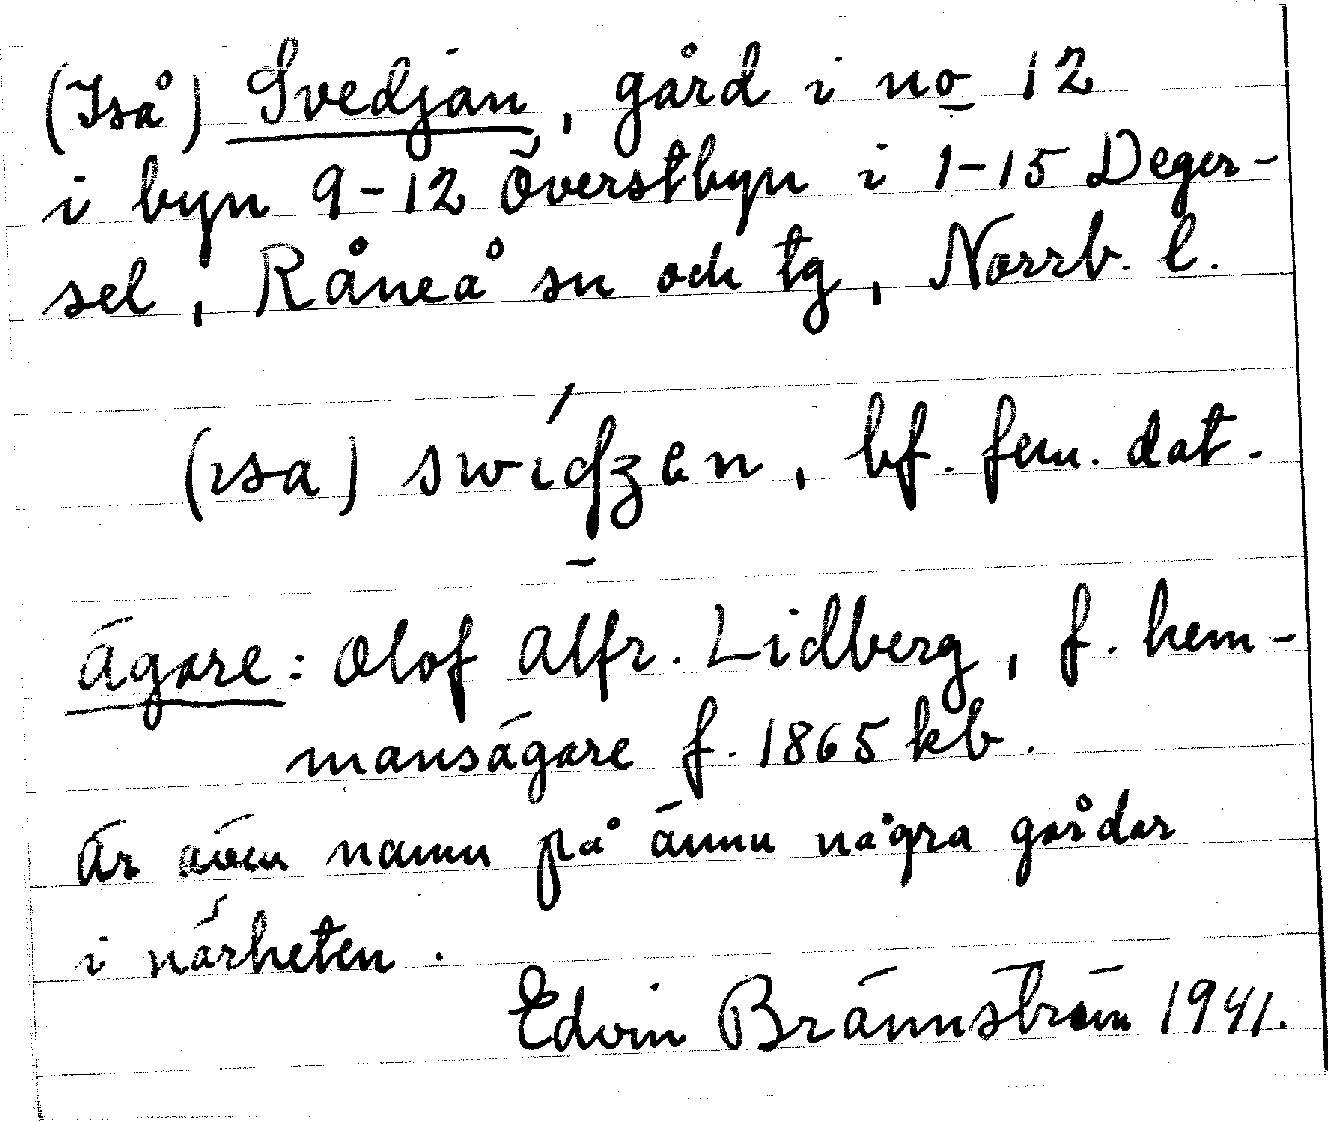 (Iså) Svedjan, gård i no 12
i byn 9-12 Överstbyn i 1-15 Deger-
sel, Råneå sn och tg, Norrb. l.
(ısa) , bf. fem. dat.
Ägare: Olof Alfr. Lidberg, f. hem-
mansägare f. 1865 kb.
Är även namn på ännu några gårdar
i närheten.
Edvin Brännström 1941.